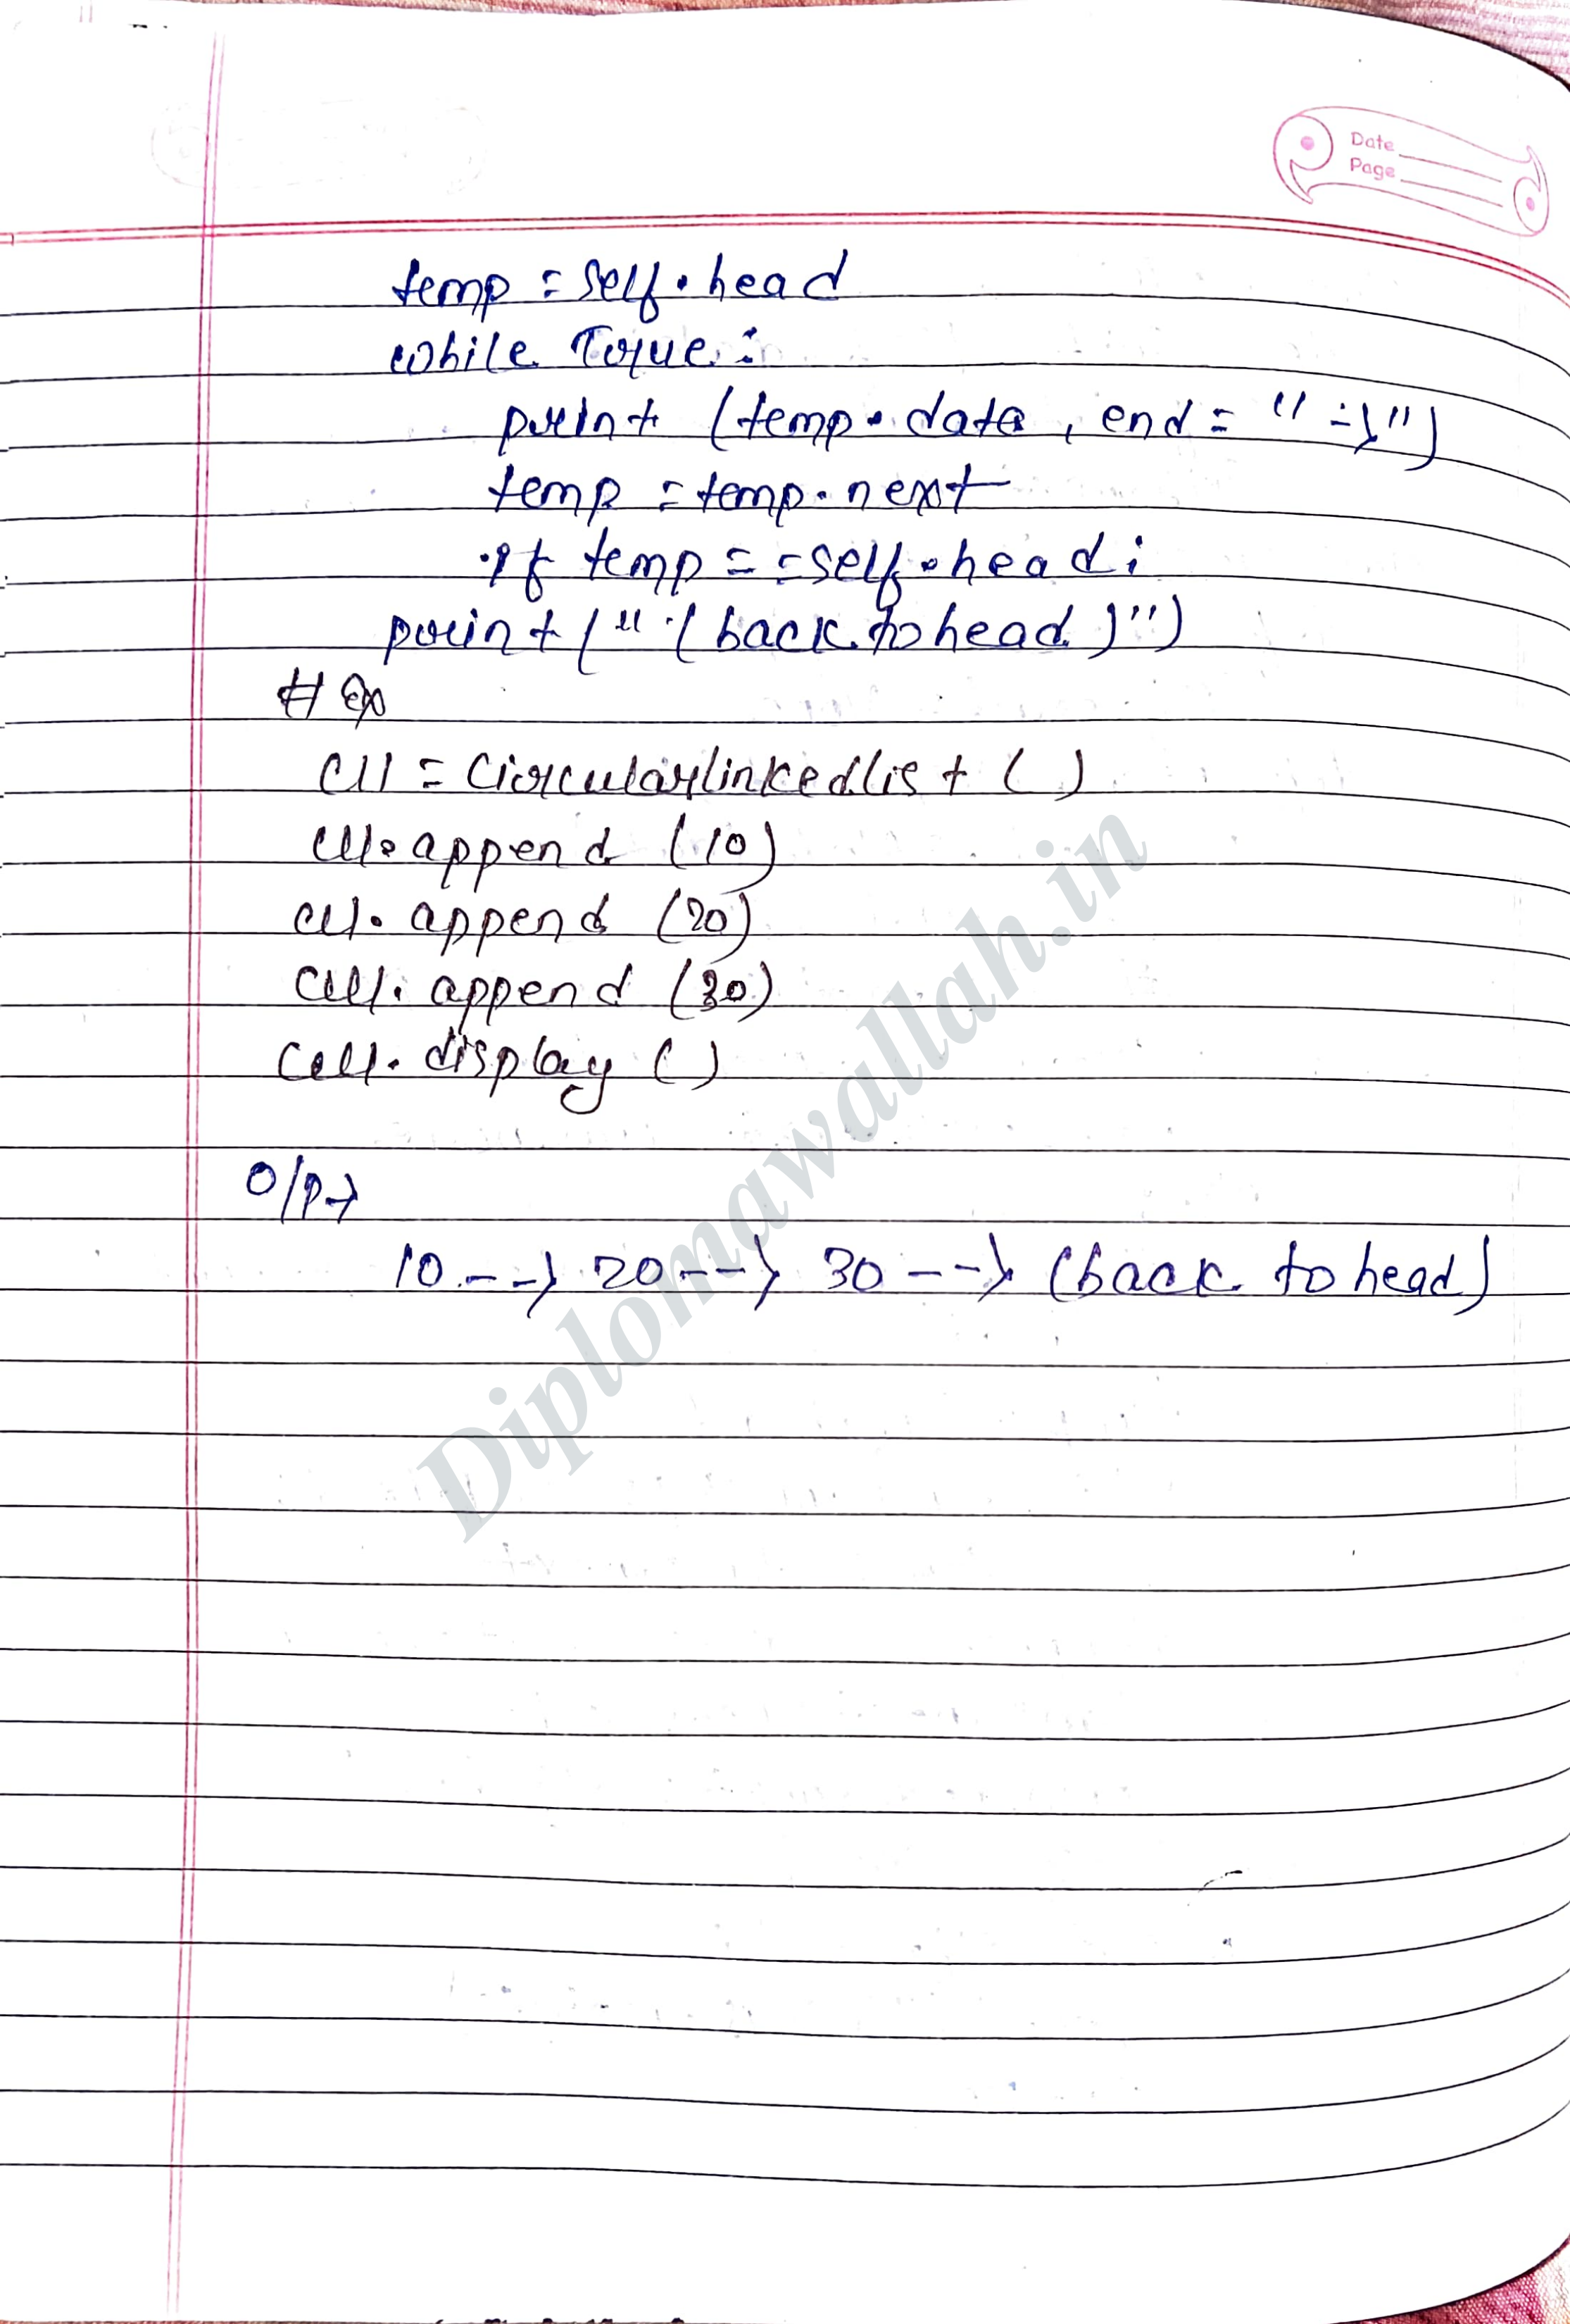 Date
Page
temp = self.head
while True:
print (temp.data, end = "->")
temp = temp.next
if temp == self.head:
print (" (back to head)")
# Ex
cll = Circularlinkedlist ()
cll.append (10)
cll.append (20)
cll.append (30)
cll.display ()
O/P→
10 --> 20 --> 30 --> (back to head)
Diplomawallah.in